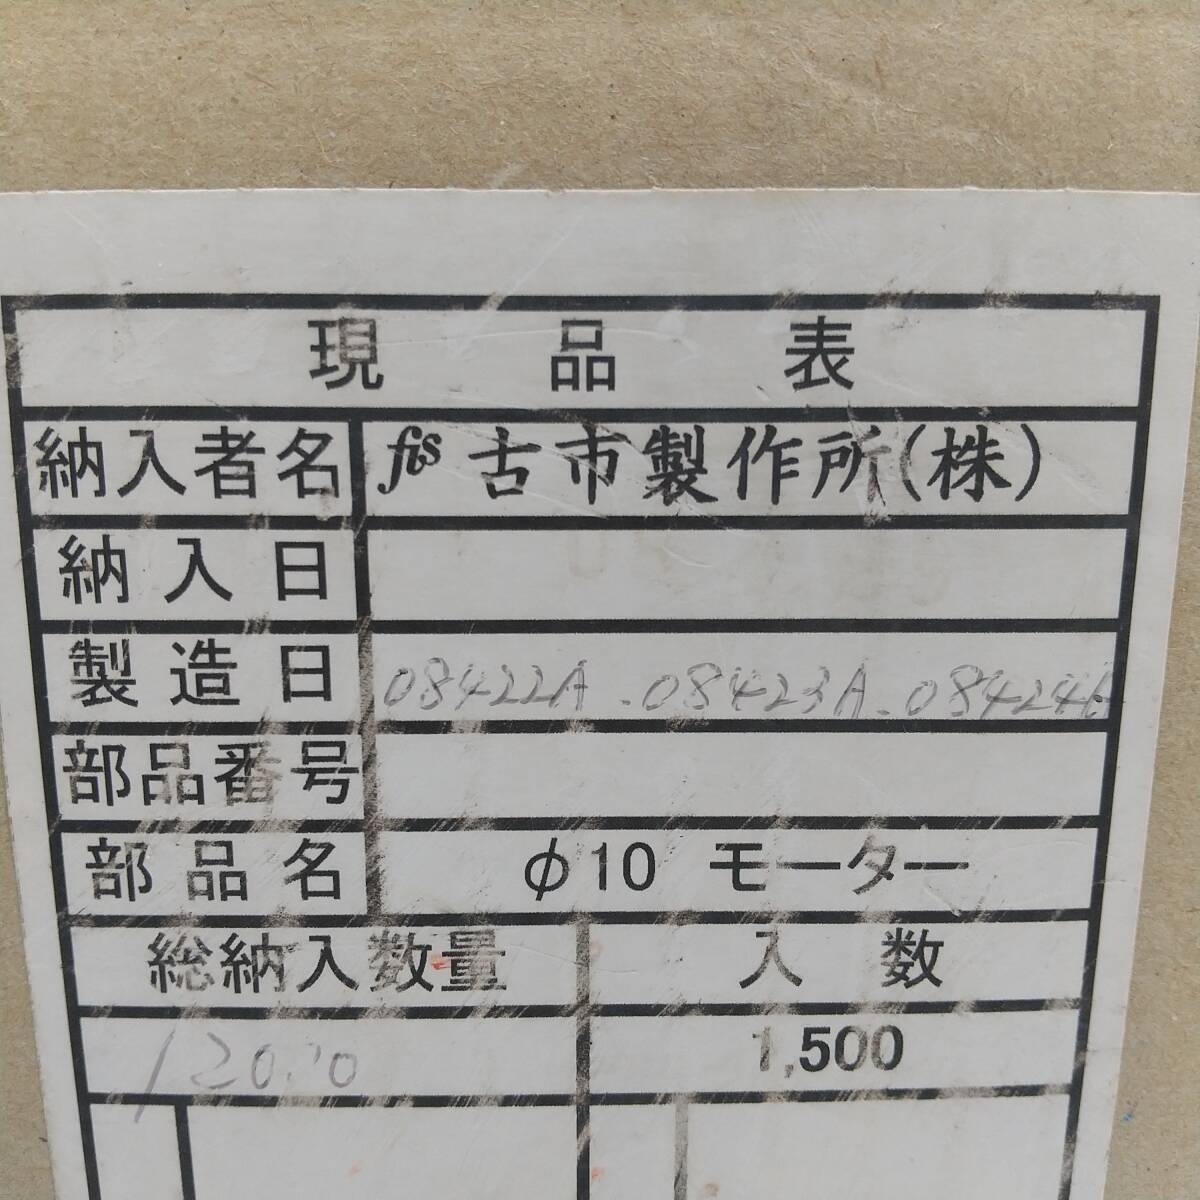 現品表
納入者名 fis 古市製作所(株)
納入日
製造日 08422A.08423A.08424A
部品番号
部品名 φ10 モーター
総納入数量 入数
1,500